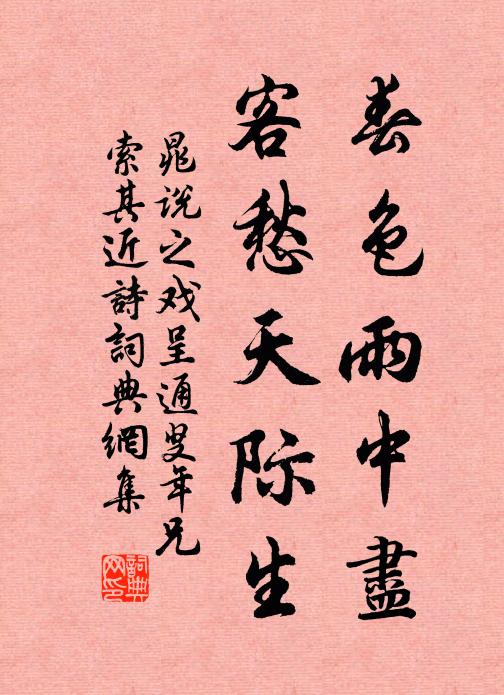 春色雨中盡
客愁天际生
晁说之戏呈通叟年兄
索其近詩詞典網集
詞典网印